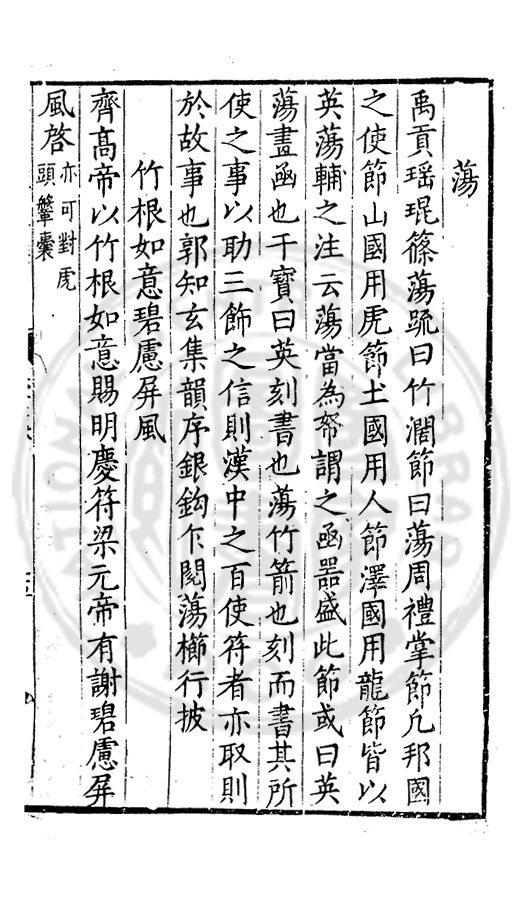 蕩
禹貢瑶琨篠蕩䟽曰竹濶節曰蕩周禮掌節凡邦國
之使節山國用虎節土國用人節澤國用龍節皆以
英蕩輔之注云蕩當為帑謂之函噐盛此節或曰英
蕩畫函也干寳曰英刻書也蕩竹箭也刻而書其所
使之事以助三飾之信則漢中之百使符者亦取則
於故事也郭知玄集韻序銀鈎乍閱蕩櫛行披
竹根如意碧慮屏風
齊髙帝以竹根如意賜明慶符梁元帝有謝碧慮屏
風啓亦可對虎
頭鞶囊